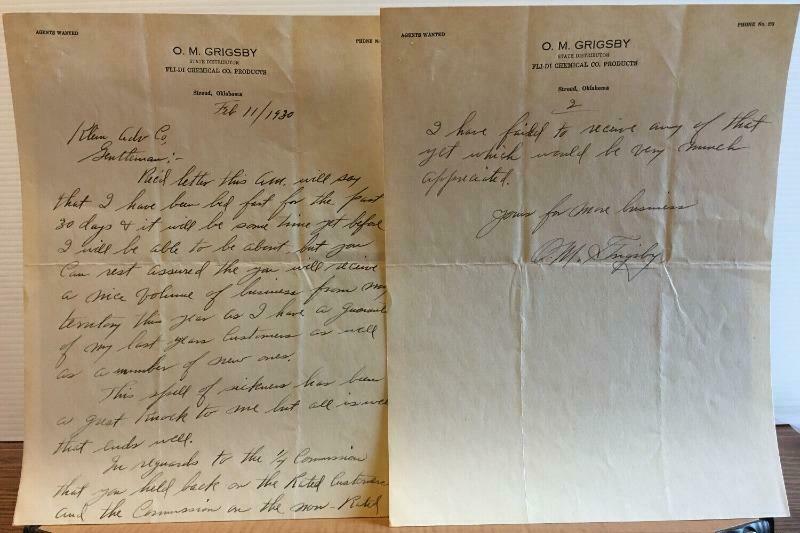 AGENTS WANTED
PHONE N
O. M. GRIGSBY
STATE DISTRIBUTOR
FLI-DI CHEMICAL CO. PRODUCTS
Stroud, Oklahoma
Feb 11/1930
Klein Adv Co,
Gentleman:-
Rec'd letter this am. will say
that I have been bed fast for the past
30 days & it will be some time yet before
I will be able to be about, but you
can rest assured the you will receive
a nice volume of business from my
territory this year as I have a
of my last years customers as well
as a number of new ones.
This spell of sickness has been
a great knock to me but all is well
that ends well.
In reguards to the 1/4 Commission
that you held back on the Rated Customers
and the Commission on the non-Rated
AGENTS WANTED
PHONE No. 273
O. M. GRIGSBY
STATE DISTRIBUTOR
FLI-DI CHEMICAL CO. PRODUCTS
Stroud, Oklahoma
2
I have failed to receive any of that
yet which would be very much
appreciated.
Yours for more business
O. M. Grigsby